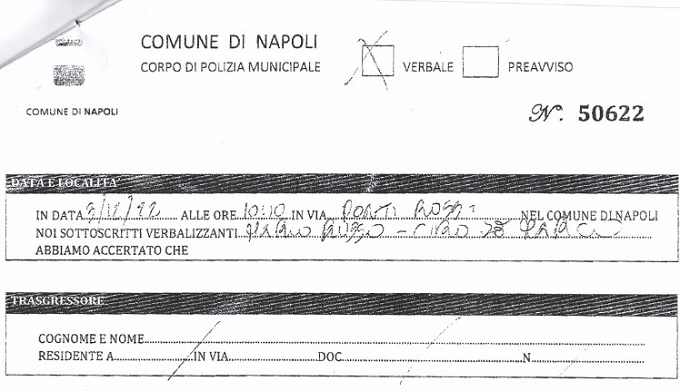 COMUNE DI NAPOLI
CORPO DI POLIZIA MUNICIPALE
VERBALE
PREAVVISO
COMUNE DI NAPOLI
N°. 50622
DATA E LOCALITA'
IN DATA 3/12/22 ALLE ORE 10:10 IN VIA PONTI ROSSI NEL COMUNE DI NAPOLI
NOI SOTTOSCRITTI VERBALIZZANTI MARIO RUSSO - CIRO
ABBIAMO ACCERTATO CHE
TRASGRESSORE
COGNOME E NOME
RESIDENTE A IN VIA DOC N